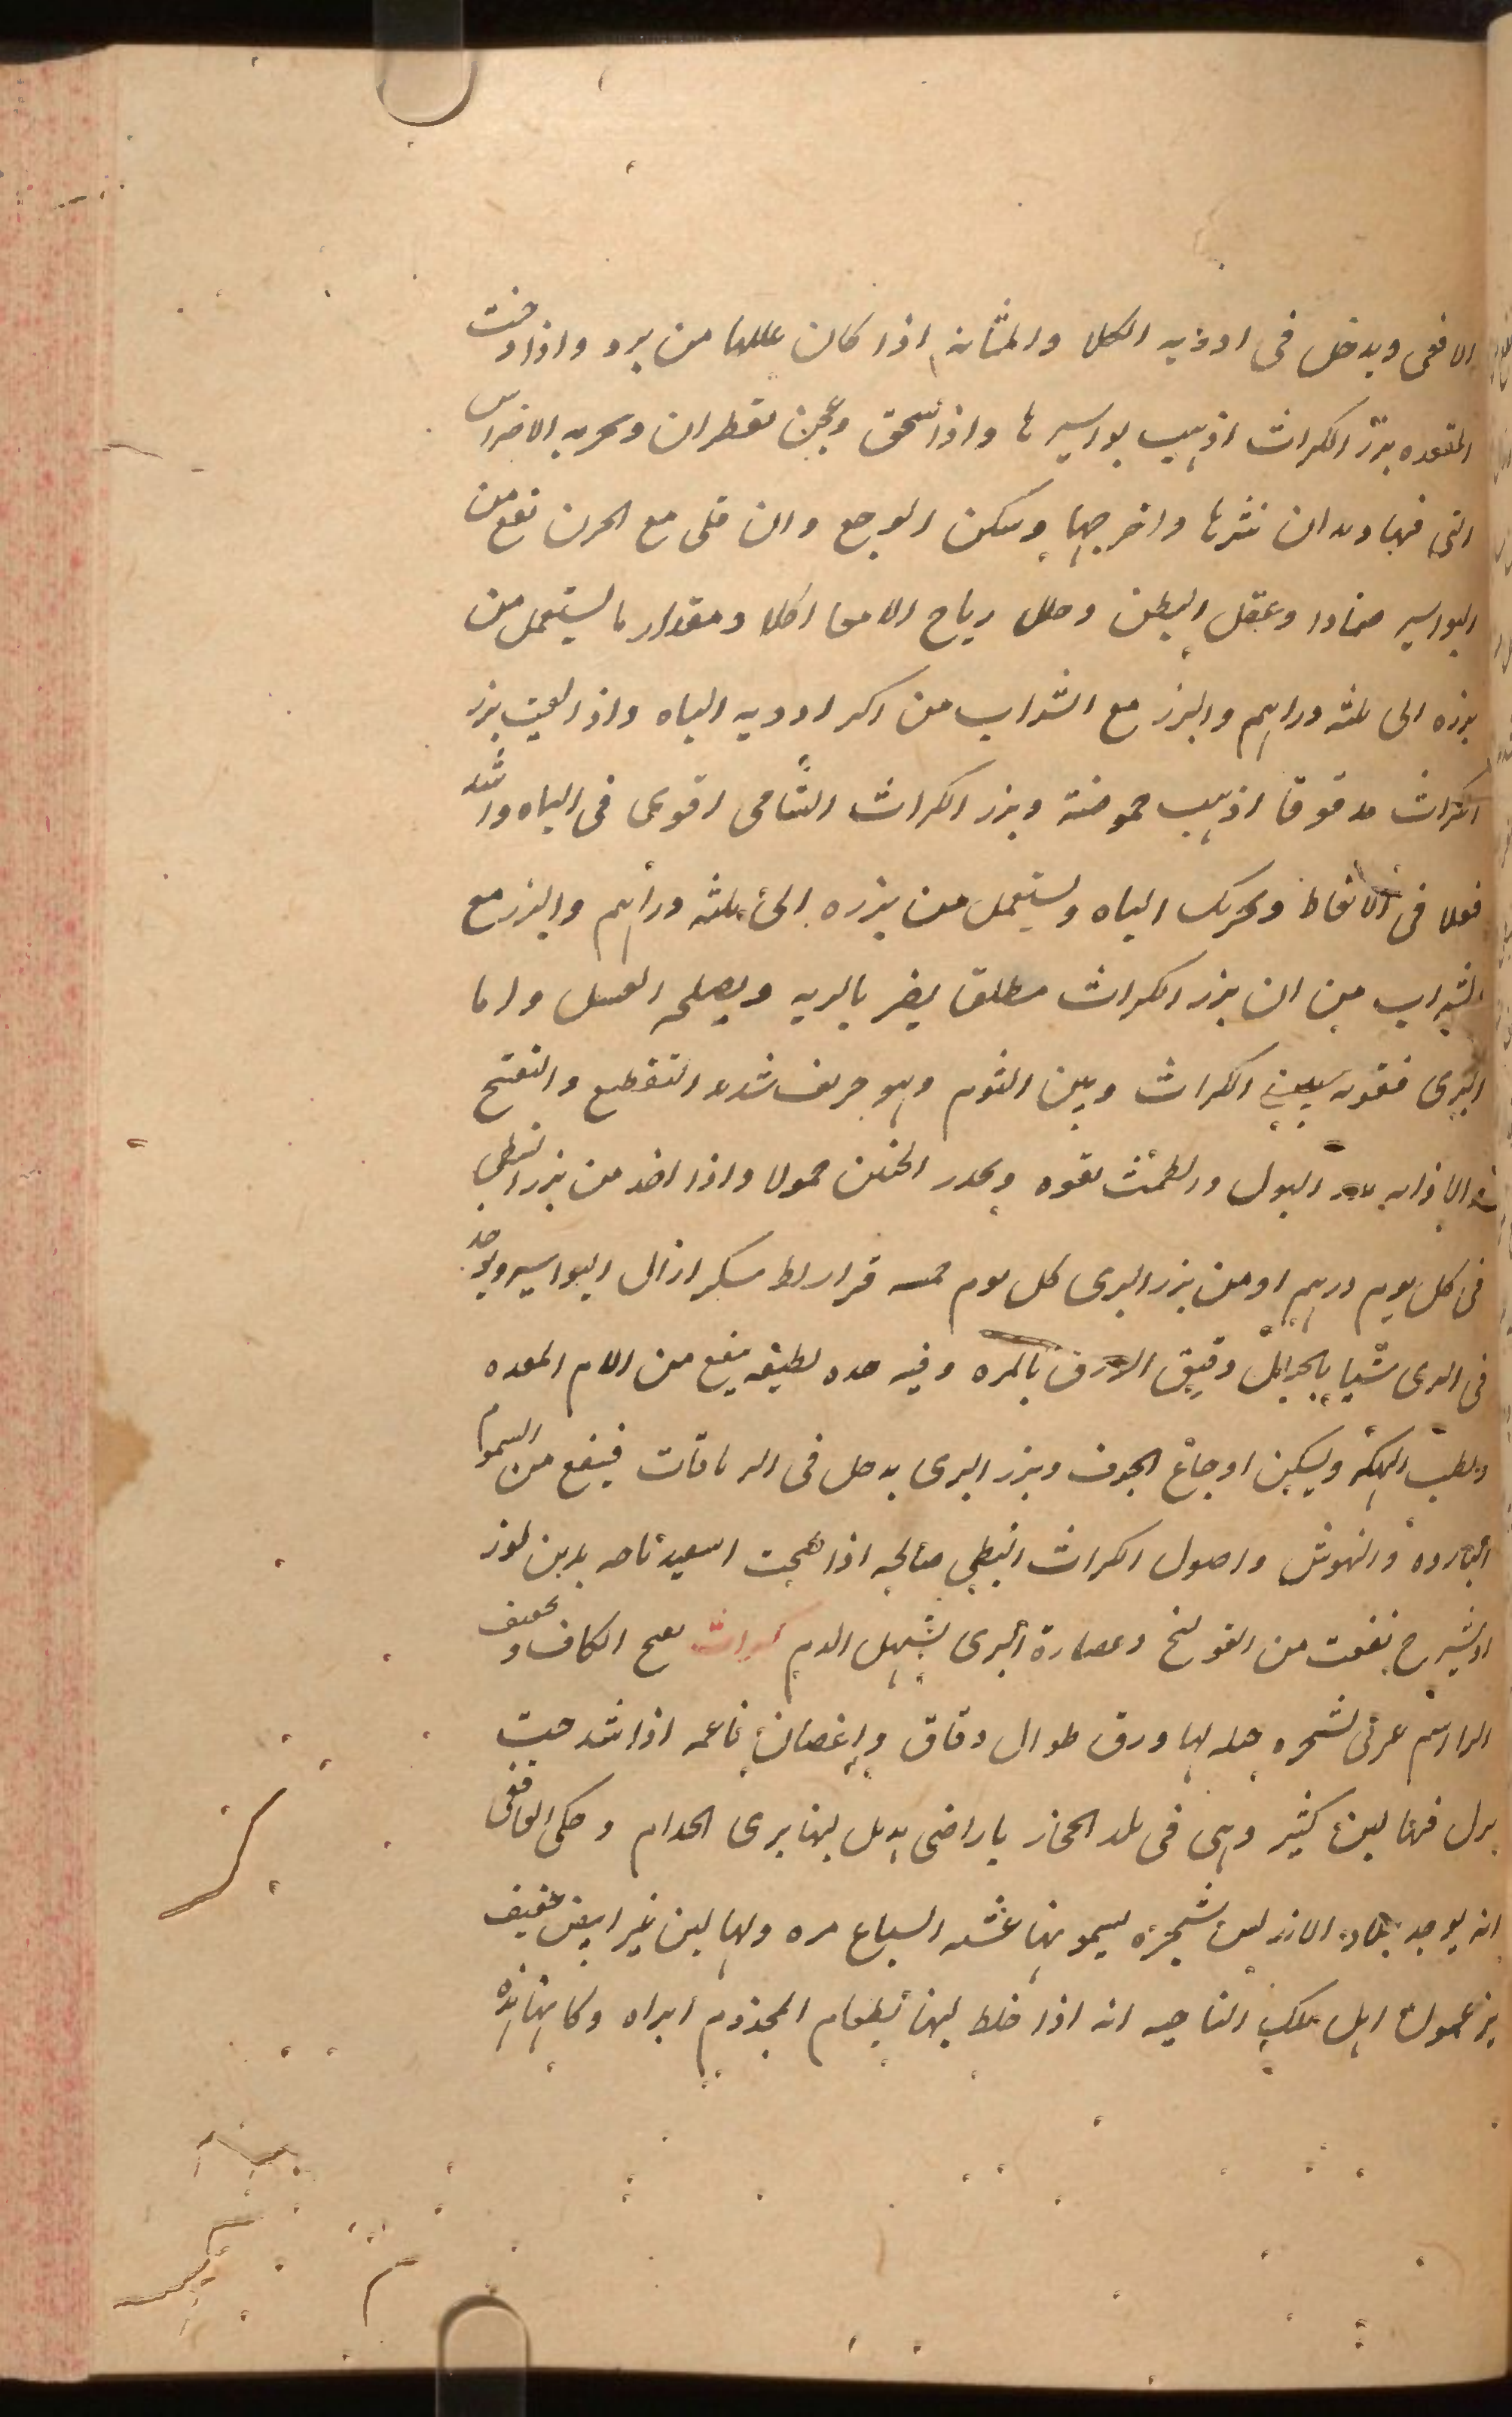 الافعى ويدخل فى ادويه الكلا والمثانه اذا كان عللها من برد واذا دخنت
المقعده ببزر الكراث اذهب بواسيرها واذا سحق وعجن بقطران وبخر به الاضراس
التى فيها ديدان نثرها واخرجها وسكن الوجع وان قلى مع الحرف نفع من
البواسير ضمادا وعقل البطن وحلل رياح الامعا اكلا ومقدار ما يستعمل من
بزره الى ثلثه دراهم والبزر مع الشراب من اكبر ادويه الباه واذا لعق بزر
الكراث مدقوقا اذهب حموضة وبزر الكراث الشامى اقوى فى الباه واشد
فعلا فى الانعاظ وتحريك الباه ويستعمل من بزره الى ثلثه دراهم والبزر مع
الشراب من ان بزر الكراث مطلق يضر بالريه ويصلحه العسل واما
البرى فقوته بين الكراث وبين الثوم وهو حريف شديد التقطيع والتفتيح
والاذابه يدر البول والطمث بقوه ويحدر الجنين حمولا واذا اخذ من بزر النبطى
فى كل يوم درهم او من بزر البرى كل يوم خمسه قراريط بسكر ازال البواسير ويوجد
فى البرى شيا بالجبال دقيق الورق بالمره وفيه حده لطيفه ينفع من الام المعده
ويطيب النكهه ويسكن اوجاع الجوف وبزر البرى يدخل فى الترياقات فينفع من السموم
البارده والنهوش واصول الكراث النبطى صالحه اذا طبخت اسفيدباجه بدهن لوز
او شيرج نفعت من القولنج وعصارة البرى يسهل الدم كراث بفتح الكاف وتخفيف
الرا اسم عربى لشجره جبليه لها ورق طوال دقاق واغصان ناعمه اذا شدخت
يزل منها لبن كثير وهى فى بلد الحجاز باراضى لبنها يبرى الجذام وحكى الغافقى
انه يوجد ببلاد الاندلس شجره يسمونها عشبه السباع مره ولها لبن غير ابيض خفيف
يزعمون اهل تلك الناحيه انه اذا خلط لبنها بطعام المجذوم ابراه وكانها هذه